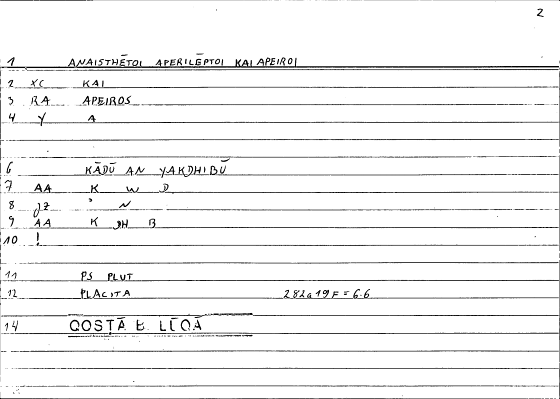 2
1 ANAISTHĒTOI APERILĒPTOI KAI APEIROI
2 XC KAI
3 RA APEIROS
4 Y A
6 KĀDŪ AN YAKDHIBŪ
7 AA K W D
8 JZ ' N
9 AA K DH B
10 !
11 PS PLUT
12 PLACITA 282a19F = 6.6
14 QOSṬĀ B. LŪQĀ